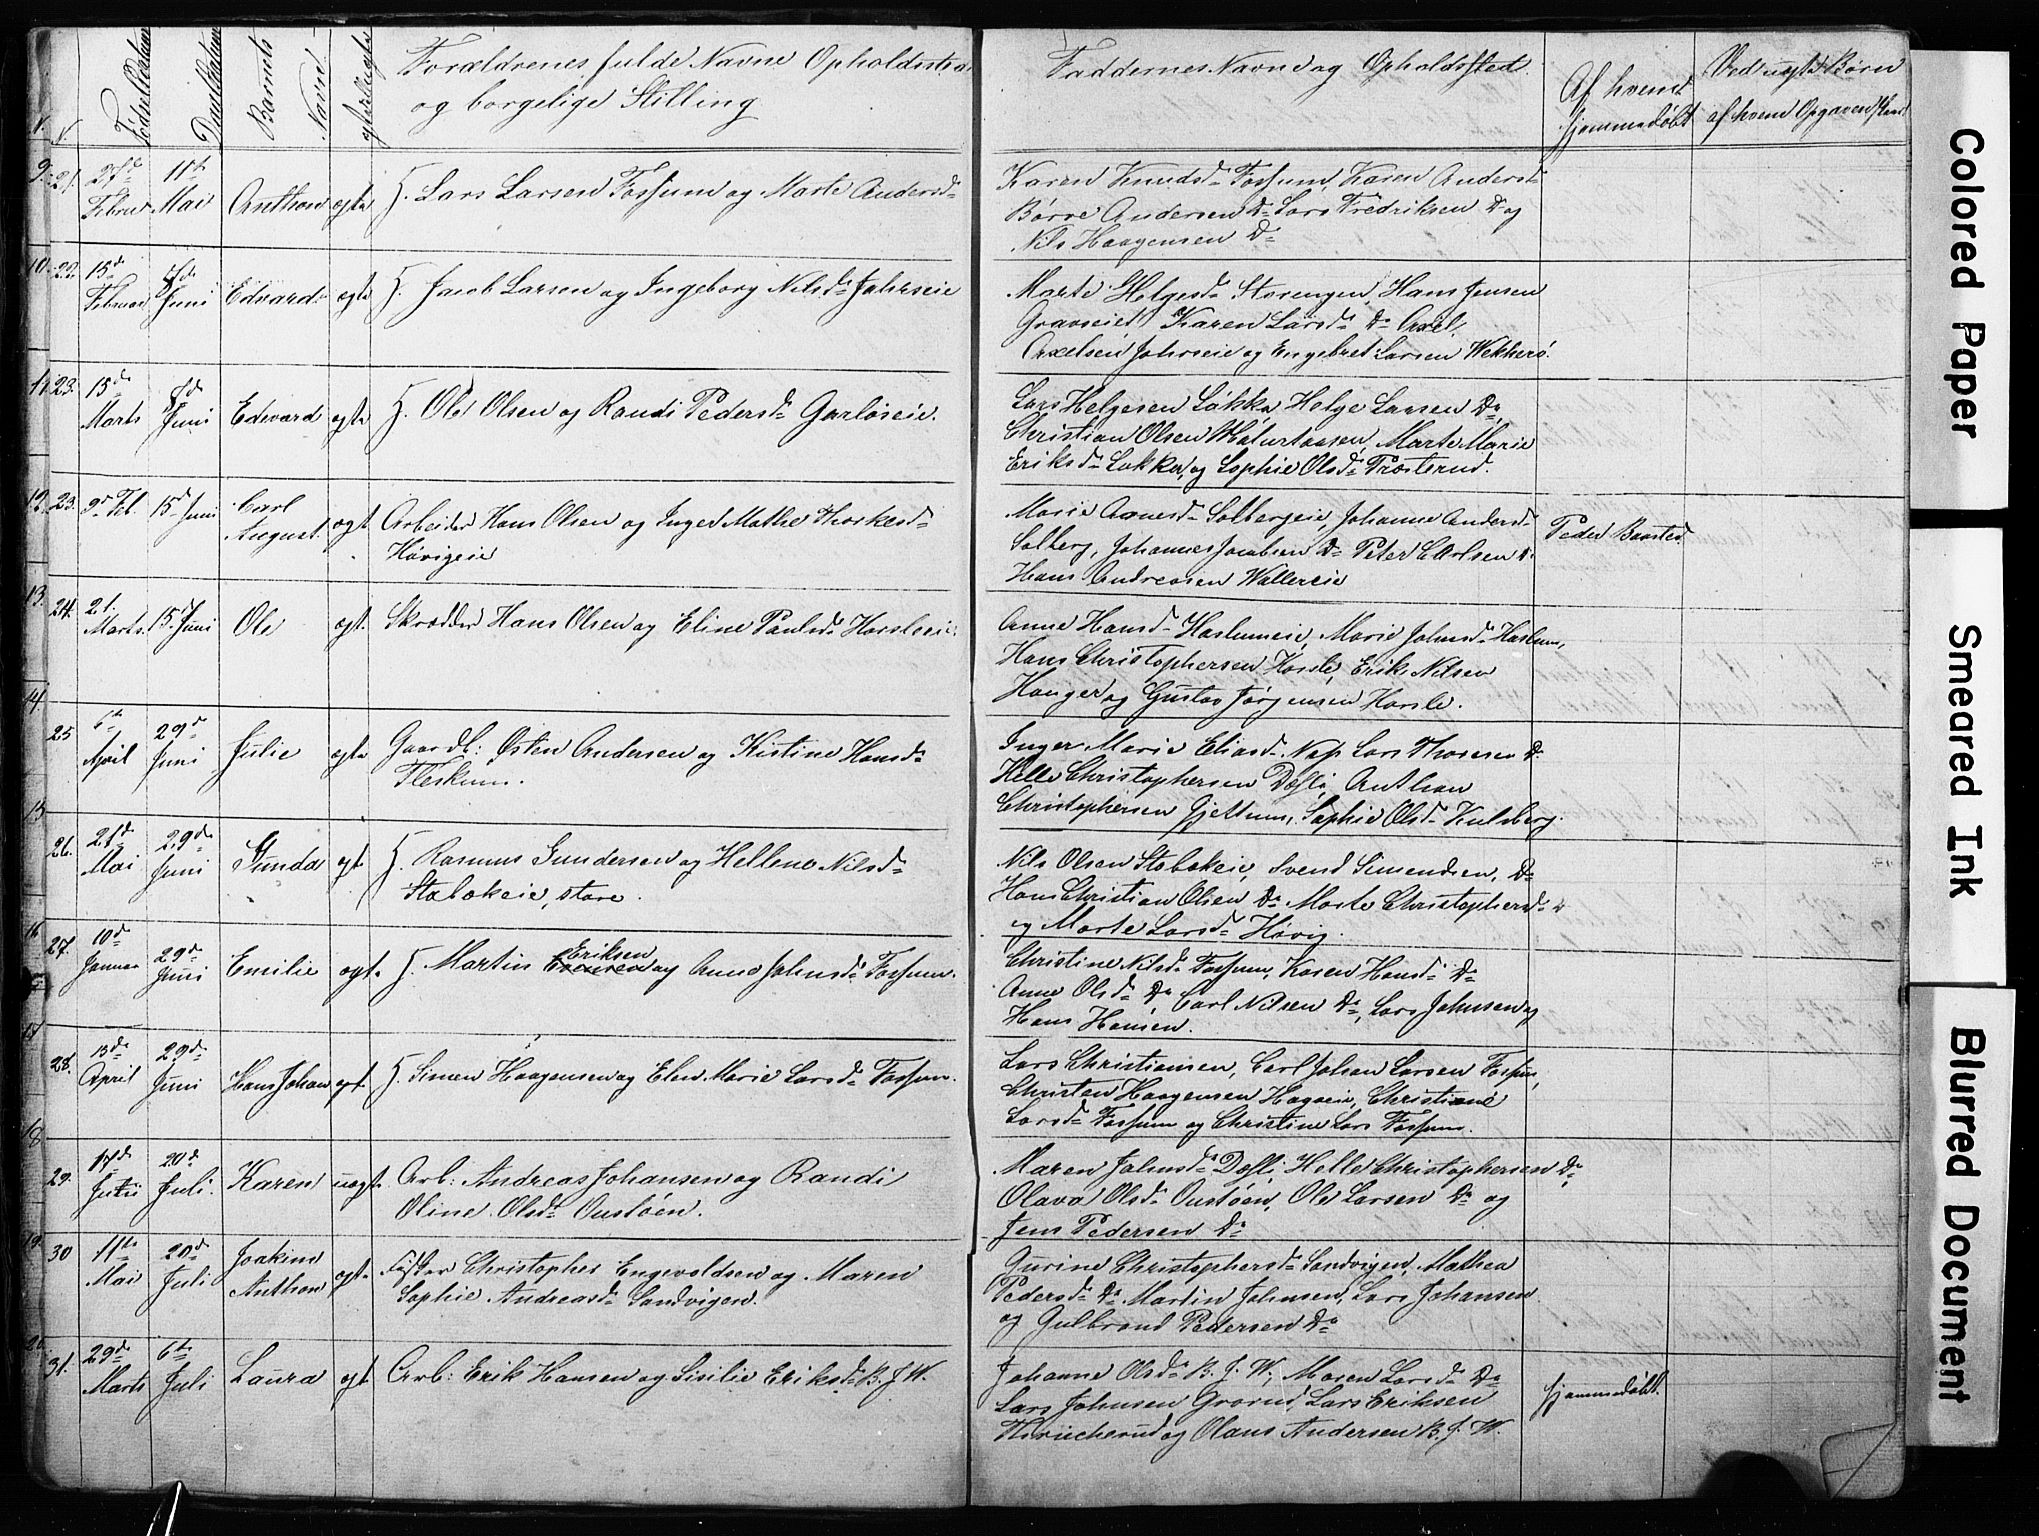 N. N. Fødselsdatum Daabdatum Barnets Navn ægte/uægte
Forældrenes fulde Navne Opholdssted
og borgelige Stilling
Faddernes Navne og Opholdssted.
Af hvem
hjemmedøbt
Ved uægte Børn
af hvem Opgaven skeed
9. 21. 27de Februar 11te Mai Anthon ægte
H. Lars Larsen Fossum og Marte Andersd
Karen Knudsd Fossum, Karen Andersd
Børre Andersen Do Lars Fredriksen Do og
Nils Haagensen Do
10. 22. 15de Februar Juni Edvard ægte
H. Jacob Larsen og Ingeborg Nilsd Jahrseie
Marte Helgesd Storengen, Hans Jensen
Gravseiet, Karen Larsd Do Axel
Axelsen Jahrseie og Engebret Larsen Wekkerø.
11. 23. 15de Marts Juni Edvard ægte
H. Ole Olsen og Randi Pedersd Garløseie.
Lars Helgesen Løkka, Helge Larsen Do
Christian Olsen Marte Marie
Eriksd Løkka, og Sophie Olsd Trosterud.
12. 23. 2d Feb. 15d Juni Carl August ægt
Arbeider Hans Olsen og Inger Mathea
Høvigeie
Marie Solbergeie, Johanne Andersd
Solberg, Johannes Jacobsen Do Peter Carlsen Do
Hans Andreasen Wallereie
Peder Baasted
13. 24. 21. Marts. 15 Juni Ole ægt.
Skrædder Hans Olsen og Eline Paulsd Horsleeie.
Anne Hansd Haslumeie, Marie Johnsd Haslum,
Hans Christophersen Horsle, Erik Nilsen
Hauger og Gustav Jørgensen Horsle.
14. 25 6te April 29d Juni Julie ægte
Gaardb: Østen Andersen og Kistine Hansd
Fleskum.
Inger Marie Eliasd Nap Lars Thoresen Do
Helle Christophersen Dæli, Anthon
Christophersen Gjettum, Sophie Olsd Kulsberg.
15 26. 21d Mai 29de Juni Gunda ægt
H. Rasmus Gundersen og Hellene Nilsd
Stabækeie, store.
Nils Olsen Stabækeie, Svend Simensen, Do
Hans Christian Olsen Do Marte Christophersd Do
og Marte Larsd Høvig.
16 27. 10de Januar 29de Juni Emilie ægt.
Eriksen
H. Martin og Anne Johnsd Fossum.
Christine Nilsd Fossum, Karen Hansd Do
Anne Olsd Do Carl Nilsen Do, Lars Johnsen og
Hans Hansen.
17 28. 13de April 29de Juni Hans Johan ægt.
H. Simen Haagensen og Elen Marie Larsd Fossum.
Lars Christiansen, Carl Johan Larsen Fossum,
Christen Haagensen Hagaeie, Christiane
Larsd Fossum og Christine Lars Fossum.
18 29. 17de Juni 20de Juli. Karen uægt.
Arb: Andreas Johansen og Randi
Oline Olsd Oustøen.
Maren Johnsd Dæli, Helle Christophersen Do,
Olava Olsd Oustøen, Ole Larsen Do og
Jens Pedersen Do
19. 30 11te Mai 20de Juli Joakim Anthon ægt.
Fisker Christopher Engevoldsen og Maren
Sophie Andreasd Sandvigen.
Gurine Christophersd Sandvigen, Mathea
Pedersd Do Martin Johnsen, Lars Johansen
og Gulbrand Pedersen Do
20. 31. 29de Marts 6te Juli Laura ægt
Arb: Erik Hansen og Sisilie Eriksd B. J. W.
Johanne Olsd B. J. W, Maren Larsd Do
Lars Johnsen Grorud, Lars Eriksen
og Olaus Andersen B. J. W.
hjemmedøbt.
Colored Paper
Smeared Ink
Blurred Document